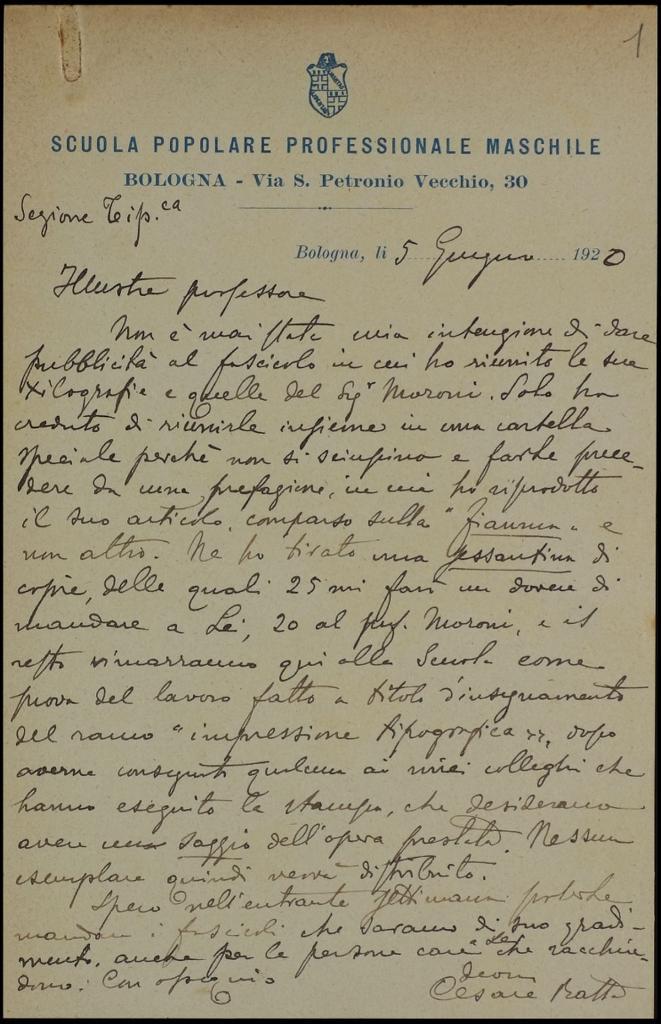 1
SCUOLA POPOLARE PROFESSIONALE MASCHILE
BOLOGNA - Via S. Petronio Vecchio, 30
Sezione Tip.ca
Bologna, li 5 Giugno 1920
Illustre professore
Non è mai stata mia intenzione di dare
pubblicità al fascicolo in cui ho riunito le sue
xilografie e quelle del Sigr Moroni. Solo ho
creduto di riunirle insieme in una cartella
speciale perchè non si sciupino e farle prece-
dere da una prefazione, in cui ho riprodotto
il suo articolo, comparso sulla "Fiamma" e
non altro. Ne ho tirato una sessantina di
copie, delle quali 25 mi farò un dovere di
mandare a Lei, 20 al prof. Moroni, e il
resto rimarranno qui alla Scuola come
prova del lavoro fatto a titolo d'insegnamento
del ramo "impressione tipografica", dopo
averne consegnati qualcuna ai miei colleghi che
hanno eseguito la stampa, che desiderano
avere un saggio dell'opera prestata. Nessun
esemplare quindi verrà distribuito.
Spero nell'entrante settimana poterle
mandare i fascicoli che saranno di suo gradi-
mento, anche per le persone care a Lei che racchiu-
dono. Con ossequio
devmo
Cesare Ratta